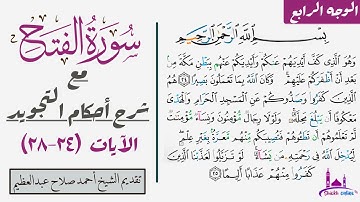 الوجه الرابع
سورة الفتح
مع
شرح أحكام التجويد
الآيات (٢٤-٢٨)
تقديم الشيخ أحمد صلاح عبدالعظيم
بِسْمِ اللَّهِ الرَّحْمَٰنِ الرَّحِيمِ
وَهُوَ الَّذِي كَفَّ أَيْدِيَهُمْ عَنكُمْ وَأَيْدِيَكُمْ عَنْهُم بِبَطْنِ مَكَّةَ مِنْ
بَعْدِ أَنْ أَظْفَرَكُمْ عَلَيْهِمْ وَكَانَ اللَّهُ بِمَا تَعْمَلُونَ بَصِيرًا ٢٤ هُمُ
الَّذِينَ كَفَرُوا وَصَدُّوكُمْ عَنِ الْمَسْجِدِ الْحَرَامِ وَالْهَدْيَ
مَعْكُوفًا أَن يَبْلُغَ مَحِلَّهُ وَلَوْلَا رِجَالٌ مُّؤْمِنُونَ وَنِسَاءٌ مُّؤْمِنَاتٌ
لَّمْ تَعْلَمُوهُمْ أَن تَطَئُوهُمْ فَتُصِيبَكُم مِّنْهُم مَّعَرَّةٌ بِغَيْرِ عِلْمٍ
لِّيُدْخِلَ اللَّهُ فِي رَحْمَتِهِ مَن يَشَاءُ لَوْ تَزَيَّلُوا لَعَذَّبْنَا الَّذِينَ
كَفَرُوا مِنْهُمْ عَذَابًا أَلِيمًا ٢٥